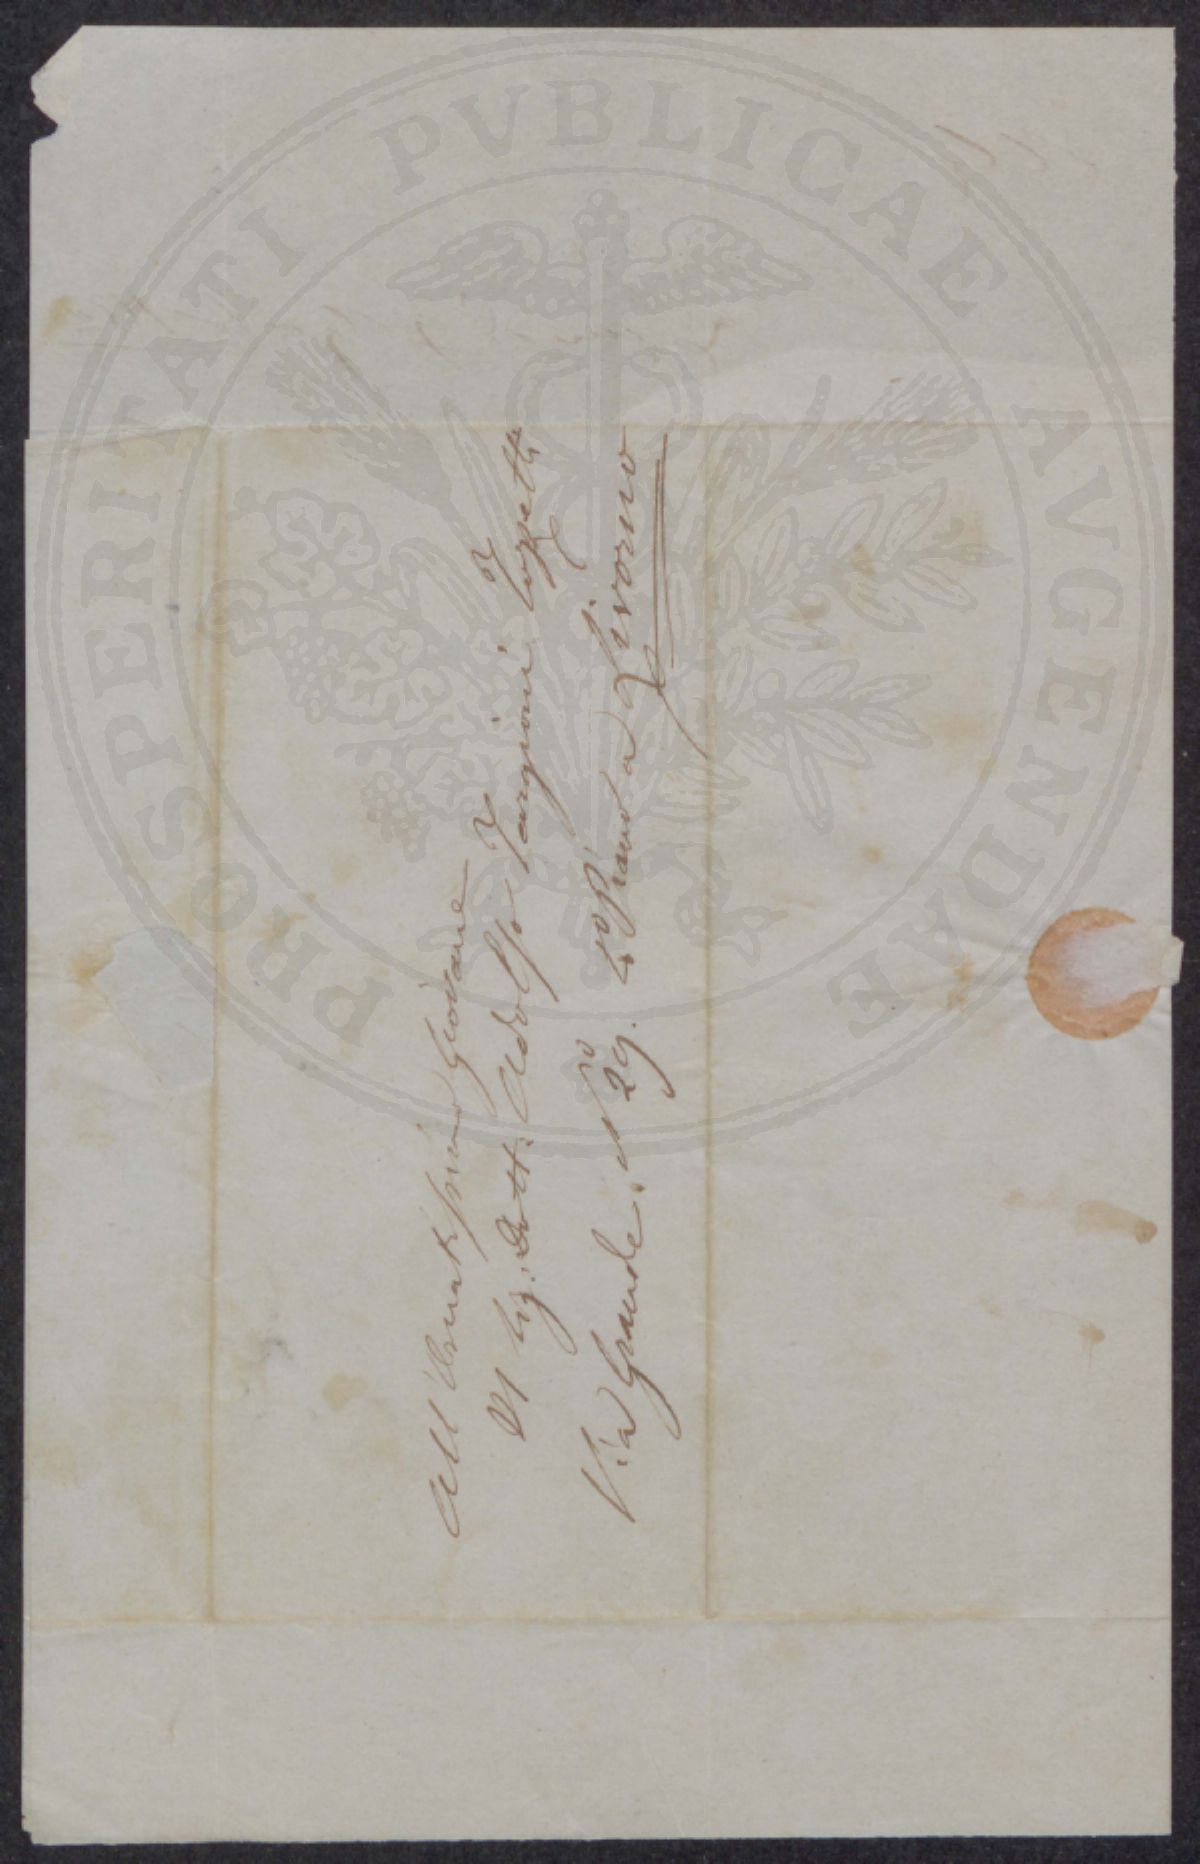 All'Ornat.ssimo Giovane
Il Sig. Dott. Adolfo Targioni Tozzetti
Via Grande. N° 29. 4° Piano a Livorno
PROSPERITATI PVBLICAE AVGENDAE